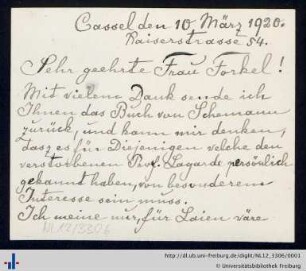 Cassel den 10 März 1920.
Kaiserstrasse 54.
Sehr geehrte Frau Forkel!
Mit vielem Dank sende ich
Ihnen das Buch von Schemann
zurück, und kann mir denken,
dasz es für Diejenigen welche den
verstorbenen Prof. Lagarde persönlich
gekannt haben, von besonderem
Interesse sein muss.
Ich meine nur, für Laien wäre
NL 12/3306
http://dl.ub.uni-freiburg.de/diglit/NL12_3306/0001
© Universitätsbibliothek Freiburg